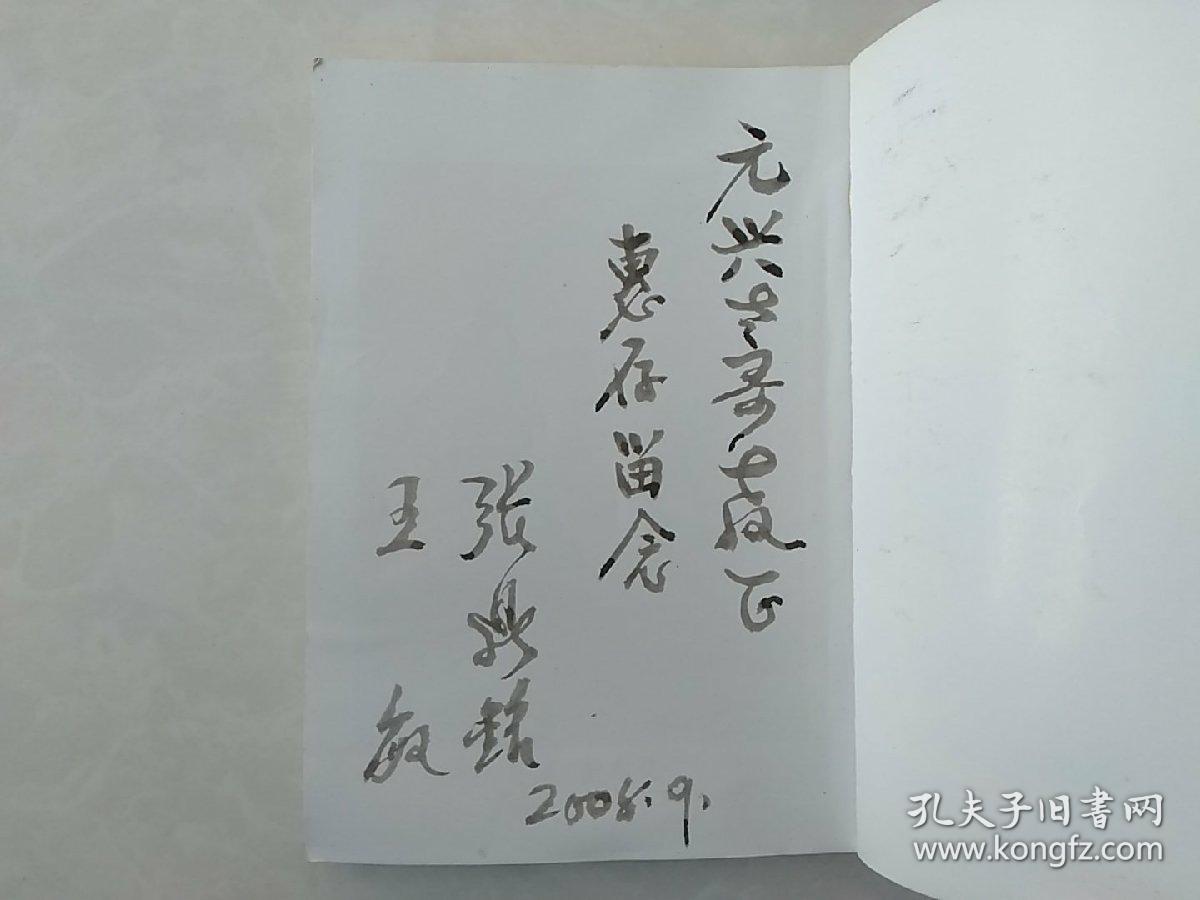 元兴大哥教正
惠存留念
张鼎铭
王敏
2008.9.
孔夫子旧书网
www.kongfz.com